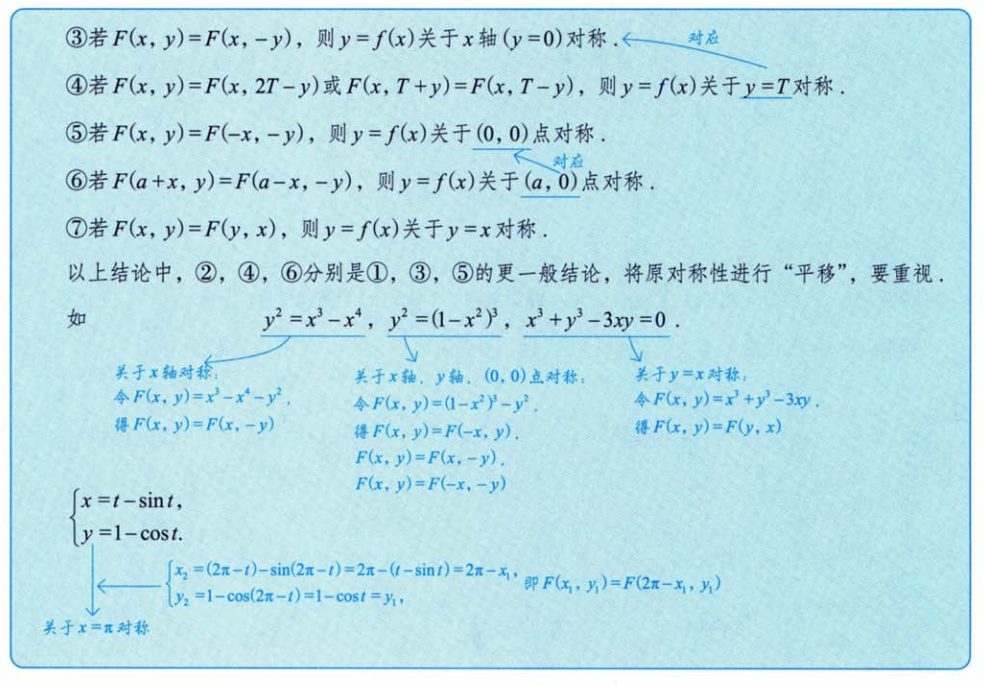 ③若 F(x, y)=F(x, -y)，则 y=f(x)关于 x 轴(y=0)对称．
对应
④若 F(x, y)=F(x, 2T-y)或 F(x, T+y)=F(x, T-y)，则 y=f(x)关于 y=T对称．
⑤若 F(x, y)=F(-x, -y)，则 y=f(x)关于(0, 0)点对称．
对应
⑥若 F(a+x, y)=F(a-x, -y)，则 y=f(x)关于(a, 0)点对称．
⑦若 F(x, y)=F(y, x)，则 y=f(x)关于 y=x 对称．
以上结论中，②，④，⑥分别是①，③，⑤的更一般结论，将原对称性进行“平移”，要重视．
如 y²=x³-x⁴，y²=(1-x²)³，x³+y³-3xy=0．
关于 x 轴对称：
令 F(x, y)=x³-x⁴-y²，
得 F(x, y)=F(x, -y)
关于 x 轴，y 轴，(0, 0)点对称：
令 F(x, y)=(1-x²)³-y²，
得 F(x, y)=F(-x, y)，
F(x, y)=F(x, -y)，
F(x, y)=F(-x, -y)
关于 y=x 对称：
令 F(x, y)=x³+y³-3xy，
得 F(x, y)=F(y, x)
x=t-sin t,
y=1-cos t.
x₂=(2π-t)-sin(2π-t)=2π-(t-sin t)=2π-x₁，
y₂=1-cos(2π-t)=1-cos t=y₁，
即 F(x₁, y₁)=F(2π-x₁, y₁)
关于 x=π 对称